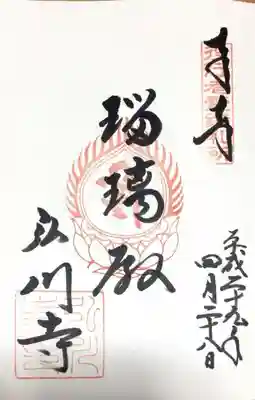 平成二十九年
四月二十八日
瑠璃殿
立川寺